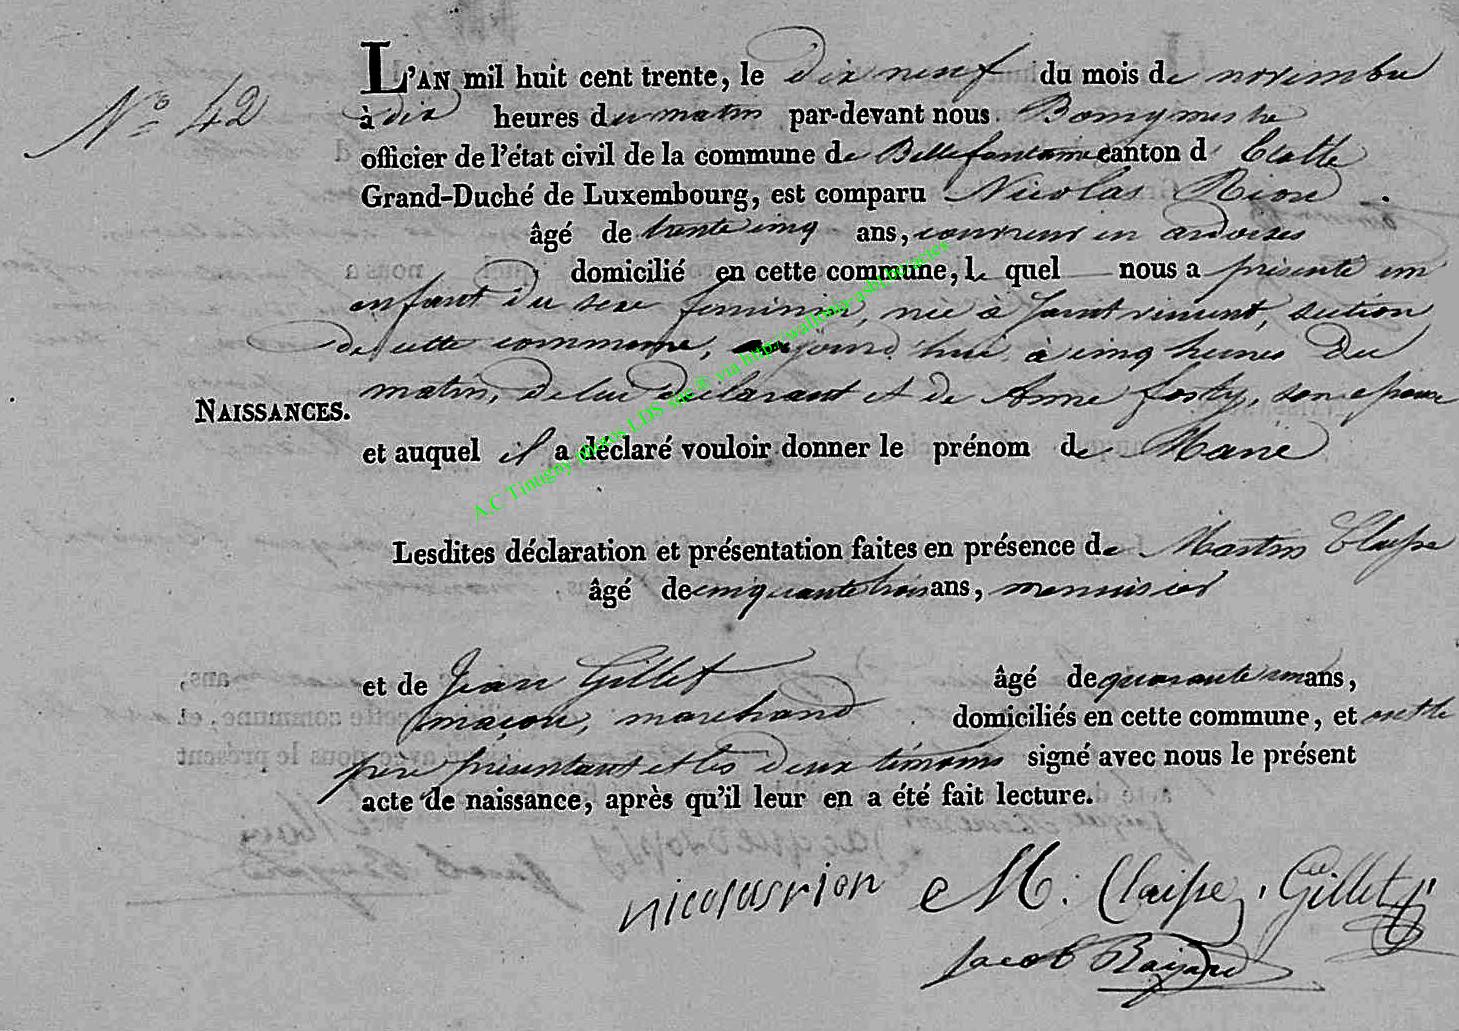 N° 42
L'AN mil huit cent trente, le dix neuf du mois de novembre
à dix heures du matin par-devant nous Bourgmestre
officier de l'état civil de la commune de Bellefontaine canton d' Etalle
Grand-Duché de Luxembourg, est comparu Nicolas Rion
âgé de trente cinq ans, couvreur en ardoises
domicilié en cette commune, le quel nous a présenté un
enfant du sexe feminin, née à Saint vincent, section
de cette commune, aujourd'hui à cinq heures du
matin, de lui déclarant et de Anne fosty, son epouse
NAISSANCES.
et auquel il a déclaré vouloir donner le prénom de Marie
Lesdites déclaration et présentation faites en présence de Martin Claisse
âgé de cinquante trois ans, menuisier
et de Jean Gillet âgé de quarante ans,
maçon, marchand domiciliés en cette commune, et
pere présentant et les deux témoins signé avec nous le présent
acte de naissance, après qu'il leur en a été fait lecture.
nicolas rion M. Claisse Gillet
Jacob Bajard
A.C Tintigny photos LDS via http://wallonia-asbl.be/actes